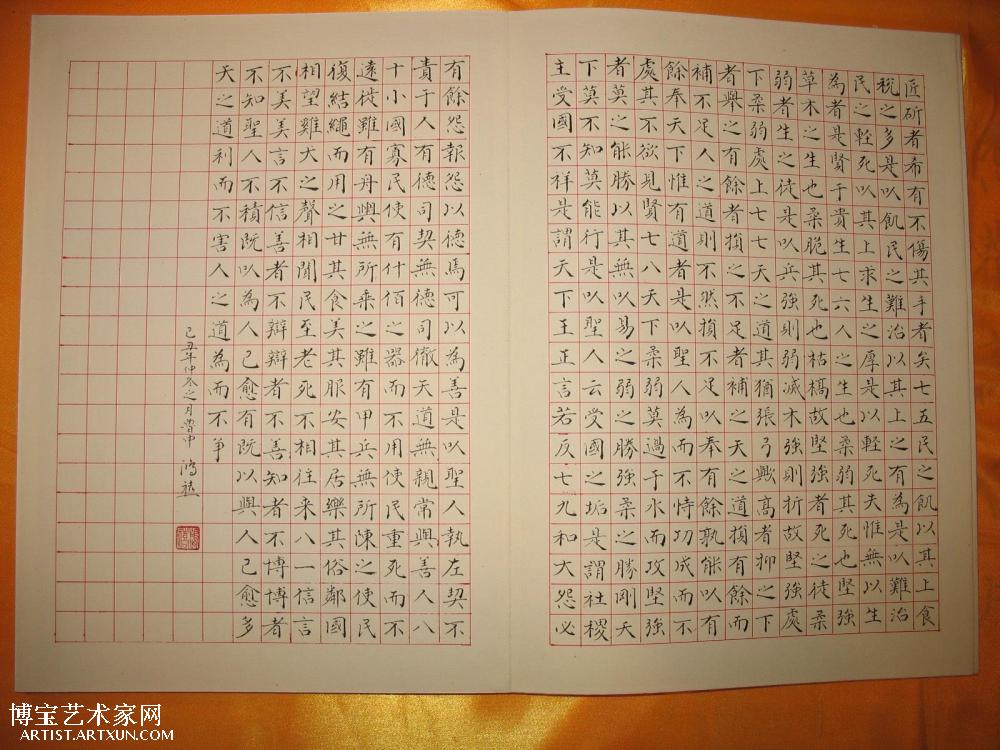 匠斫者希有不傷其手者矣七五民之飢以其上食
稅之多是以飢民之難治以其上之有為是以難治
民之輕死以其上求生之厚是以輕死夫惟無以生
為者是賢于貴生七六人之生也柔弱其死也堅強
草木之生也柔脆其死也枯槁故堅強者死之徒柔
弱者生之徒是以兵強則弱滅木強則折故堅強處
下柔弱處上七七天之道其猶張弓歟高者抑之下
者舉之有餘者損之不足者補之天之道損有餘而
補不足人之道則不然損不足以奉有餘孰能以有
餘奉天下惟有道者是以聖人為而不恃功成而不
處其不欲見賢七八天下柔弱莫過于水而攻堅強
者莫之能勝以其無以易之弱之勝強柔之勝剛天
下莫不知莫能行是以聖人云受國之垢是謂社稷
主受國不祥是謂天下王正言若反七九和大怨必
有餘怨報怨以德焉可以為善是以聖人執左契不
責于人有德司契無德司徹天道無親常與善人八
十小國寡民使有什佰之器而不用使民重死而不
遠徙雖有舟輿無所乘之雖有甲兵無所陳之使民
復結繩而用之甘其食美其服安其居樂其俗鄰國
相望雞犬之聲相聞民至老死不相往来八一信言
不美美言不信善者不辯辯者不善知者不博博者
不知聖人不積既以為人己愈有既以與人己愈多
天之道利而不害人之道為而不争
己丑年仲冬之月晋中 鴻
博宝艺术家网
ARTIST.ARTXUN.COM